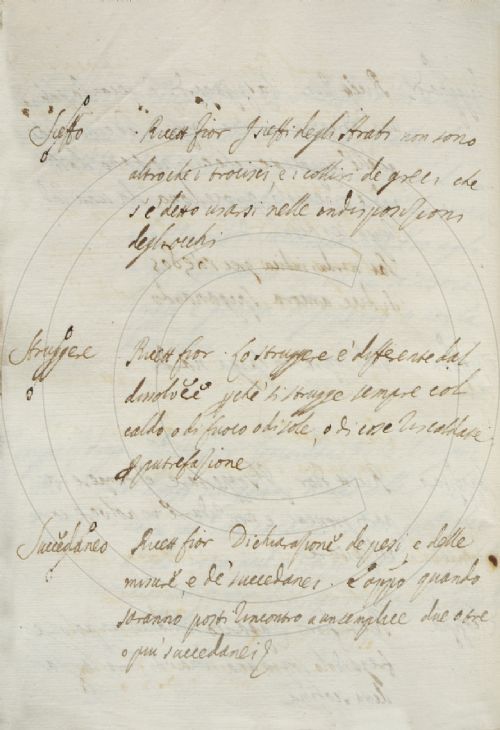 Sieffo Ricett fior I sieffi degli Arabi non sono
altro che i trocisci e i colliri de greci che
s'è detto usarsi nelle indisposizioni
degli occhi
Struggere Ricett fior Lo struggere è differente dal
dissolvere pchè si strugge sempre col
caldo o di fuoco o di sole, o di cose riscaldate
p putrefazione
Succedaneo Ricett fior Dichiarazione de pesi, e delle
misure e de succedanei. E appo quando
saranno posti rincontro a un semplice due o tre
o più succedanei